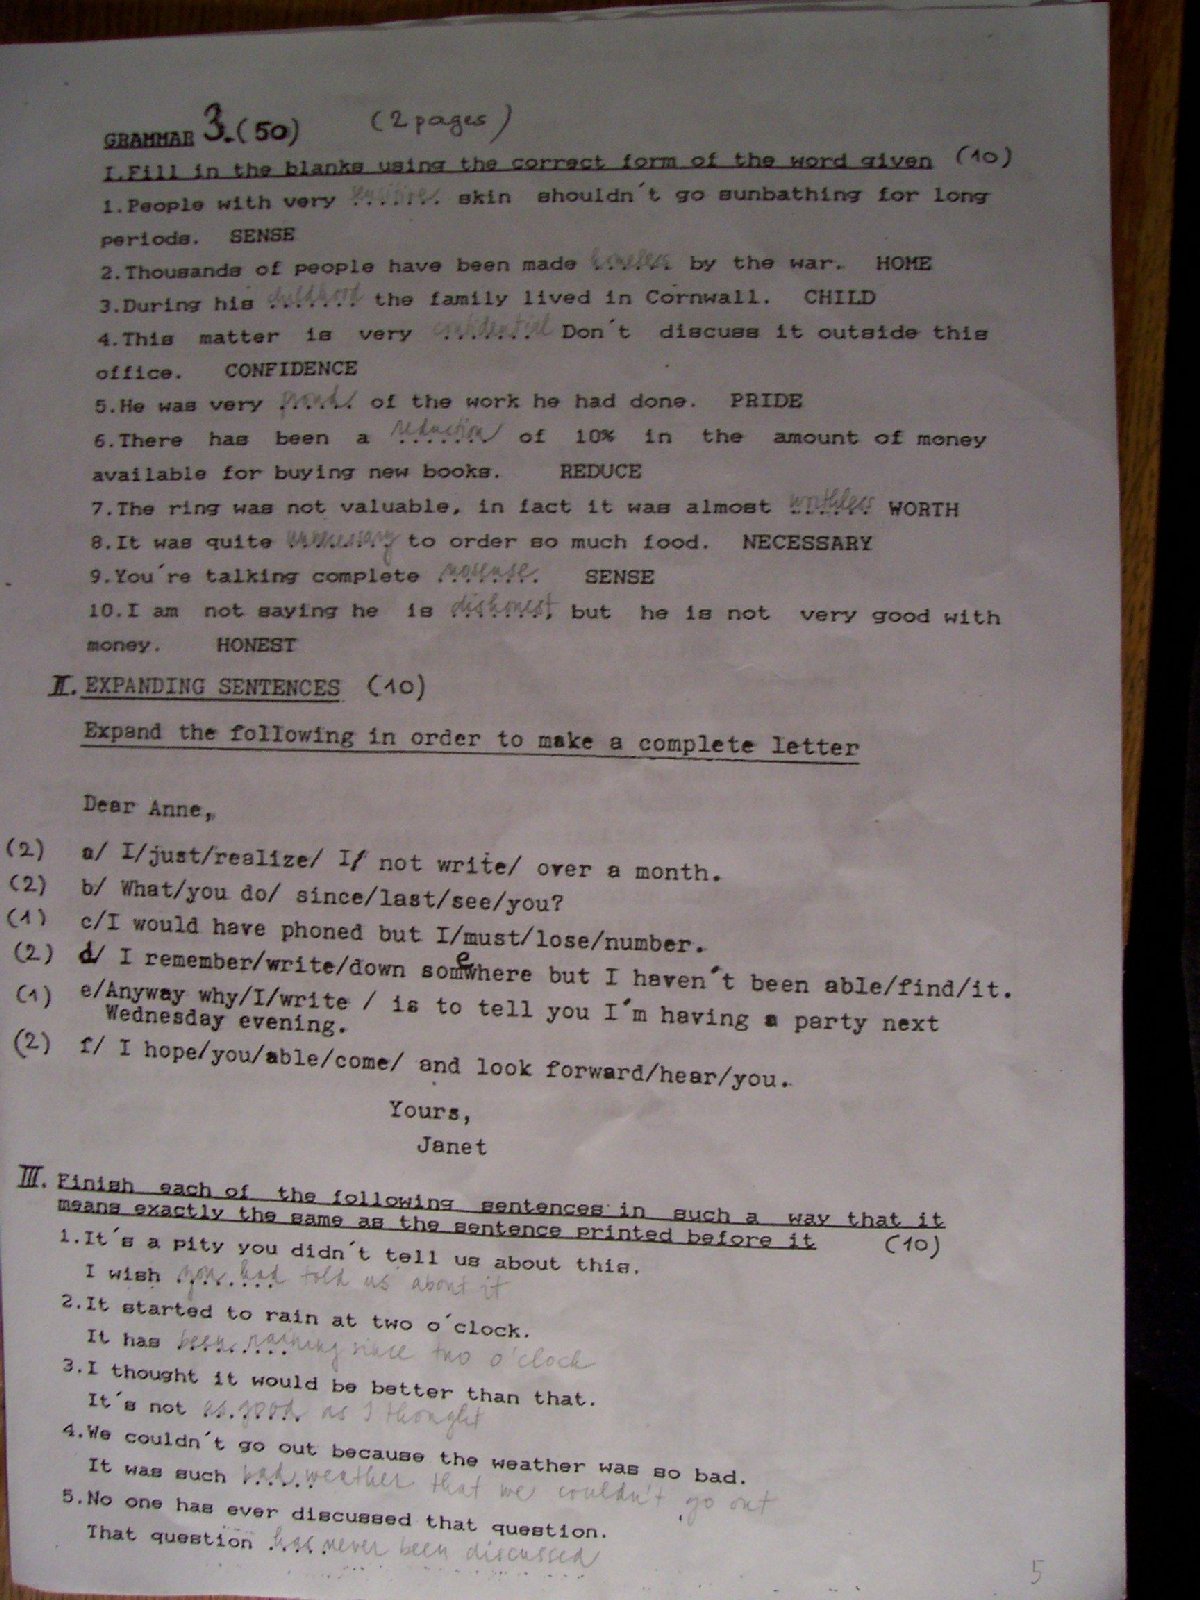 GRAMMAR 3.(50) (2 pages)
I.Fill in the blanks using the correct form of the word given (10)
1.People with very sensitive skin shouldn´t go sunbathing for long
periods. SENSE
2.Thousands of people have been made homeless by the war. HOME
3.During his childhood the family lived in Cornwall. CHILD
4.This matter is very confidential Don´t discuss it outside this
office. CONFIDENCE
5.He was very proud of the work he had done. PRIDE
6.There has been a reduction of 10% in the amount of money
available for buying new books. REDUCE
7.The ring was not valuable, in fact it was almost worthless WORTH
8.It was quite unnecessary to order so much food. NECESSARY
9.You´re talking complete . SENSE
10.I am not saying he is dishonest, but he is not very good with
money. HONEST
II. EXPANDING SENTENCES (10)
Expand the following in order to make a complete letter
Dear Anne,
(2) a/ I/just/realize/ I/ not write/ over a month.
(2) b/ What/you do/ since/last/see/you?
(1) c/I would have phoned but I/must/lose/number.
(2) d/ I remember/write/down somewhere but I haven´t been able/find/it.
(1) e/Anyway why/I/write / is to tell you I´m having a party next
Wednesday evening.
(2) f/ I hope/you/able/come/ and look forward/hear/you.
Yours,
Janet
III. Finish each of the following sentences in such a way that it
means exactly the same as the sentence printed before it (10)
1.It´s a pity you didn´t tell us about this.
I wish you had told us about it
2.It started to rain at two o´clock.
It has been raining since two o'clock
3.I thought it would be better than that.
It´s not as good as I thought
4.We couldn´t go out because the weather was so bad.
It was such bad weather that we couldn't go out
5.No one has ever discussed that question.
That question has never been discussed
5